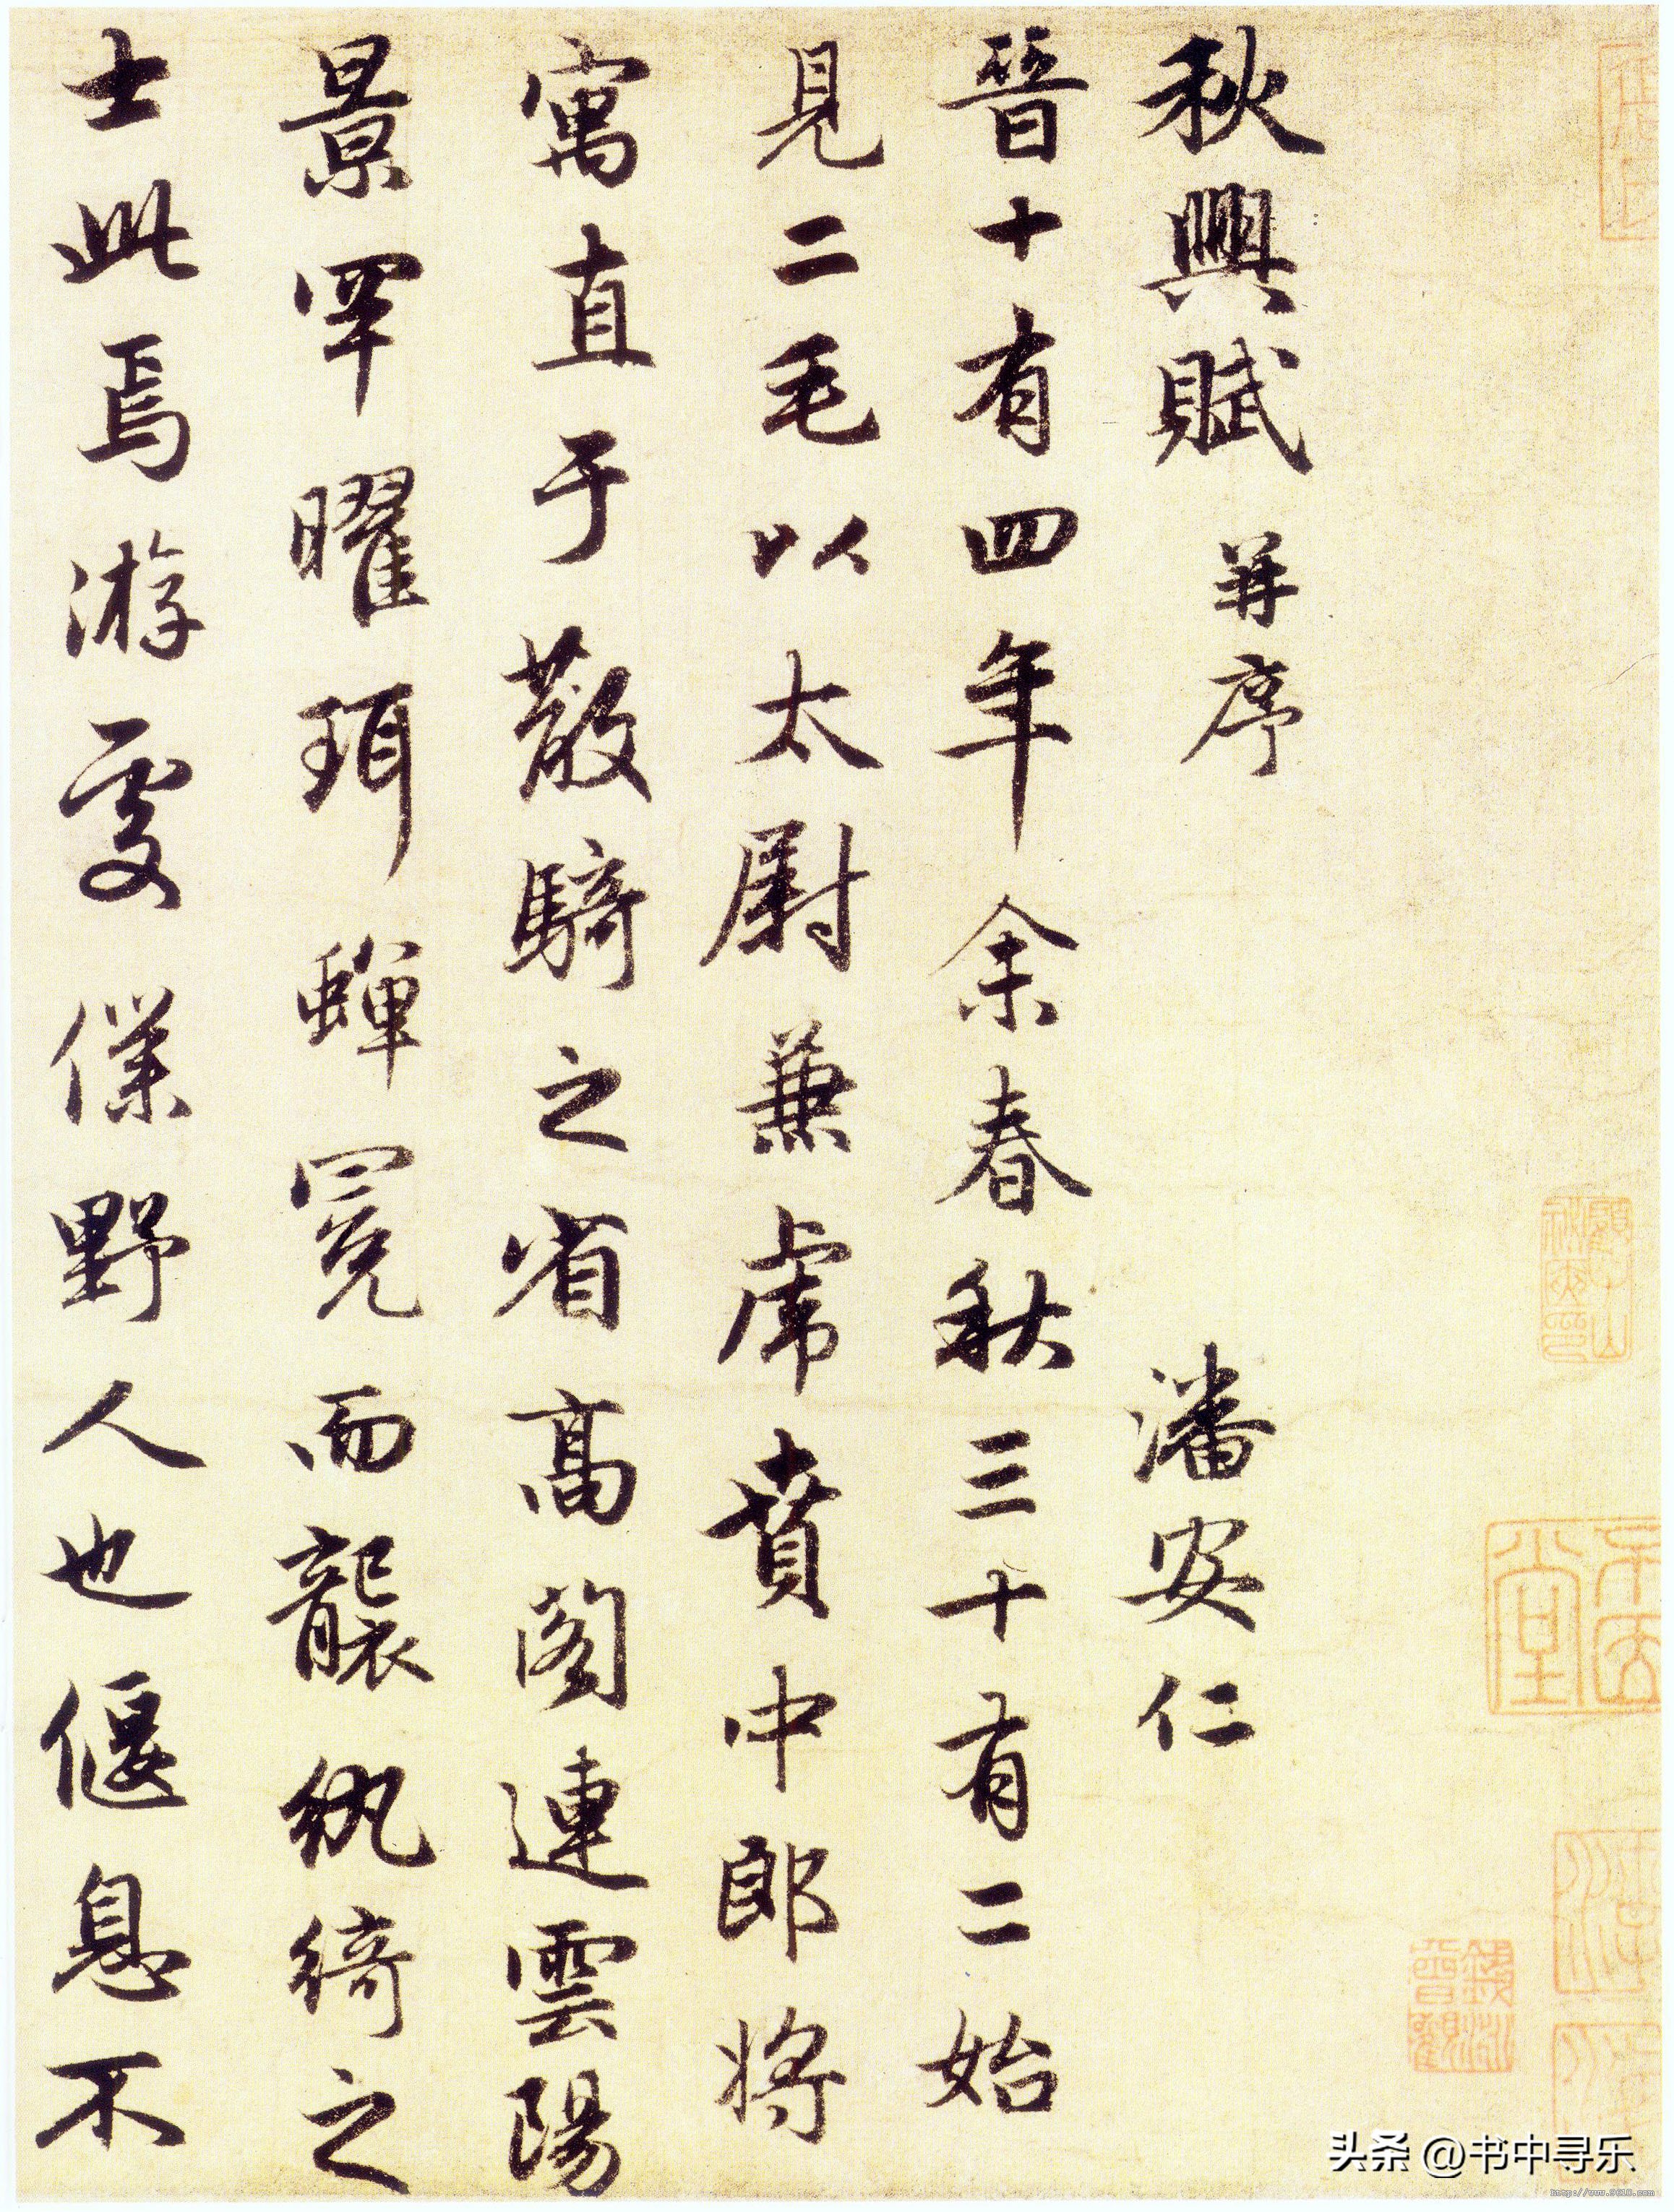 秋興賦 并序 潘安仁
晉十有四年余春秋三十有二始
見二毛以太尉兼虎賁中郎將
寓直于散騎之省高閣連雲陽
景罕曜珥蟬冕而襲紈綺之
士此焉游處僕野人也偃息不
頭条 @书中寻乐
http://www.9610.com